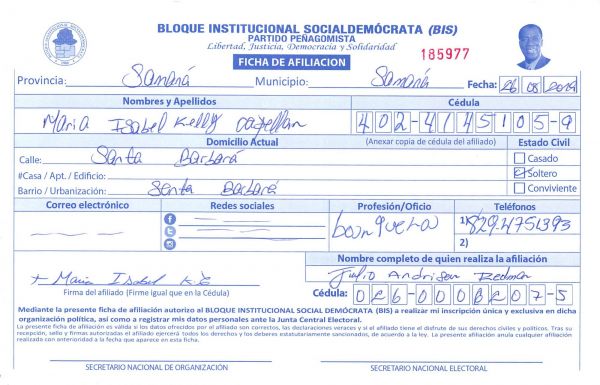 BLOQUE INSTITUCIONAL SOCIALDEMÓCRATA (BIS)
PARTIDO PEÑAGOMISTA
Libertad, Justicia, Democracia y Solidaridad
185977
FICHA DE AFILIACION
Provincia: Samaná Municipio: Samaná Fecha: 26 08 2019
Nombres y Apellidos Cédula
Maria Isabel Kelly 402-4145105-9
Domicilio Actual (Anexar copia de cédula del afiliado) Estado Civil
Calle: Santa Barbará Casado
#Casa / Apt. / Edificio: Soltero
Barrio / Urbanización: Senta Barbará Conviviente
Correo electrónico Redes sociales Profesión/Oficio Teléfonos
1) 829.4751393
2)
Nombre completo de quien realiza la afiliación
+ Maria Isabel K Julio Andrison Redman
Firma del afiliado (Firme igual que en la Cédula) Cédula:
Mediante la presente ficha de afiliación autorizo al BLOQUE INSTITUCIONAL SOCIAL DEMÓCRATA (BIS) a realizar mi inscripción única y exclusiva en dicha
organización política, así como a registrar mis datos personales ante la Junta Central Electoral.
La presente ficha de afiliación es valida si los datos ofrecidos por el afiliado son correctos, las declaraciones veraces y si el afiliado tiene el disfrute de sus derechos civiles y políticos. Tras su
recepción, sello y firmas autorizadas el afiliado ejercerá todos los derechos y los deberes estatutariamente sancionados, de acuerdo a la ley. La presente afiliación anula cualquier afiliación
realizada con anterioridad a la fecha que aparece en esta ficha.
SECRETARIO NACIONAL DE ORGANIZACIÓN SECRETARIO NACIONAL ELECTORAL